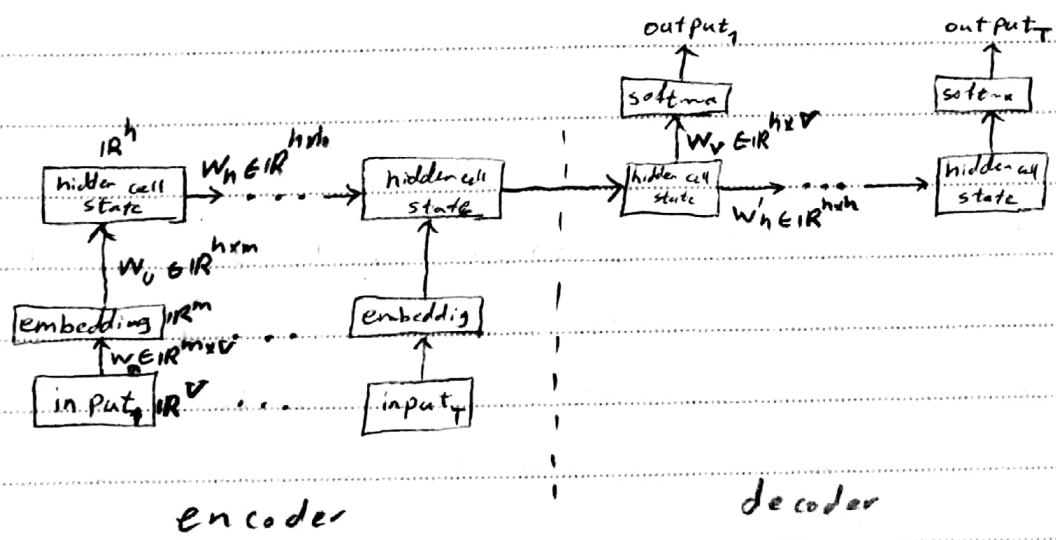 output₁
output_T
softma
softma
W_v ∈ ℝ^{h×V}
ℝ^h
W_h ∈ ℝ^{h×h}
hidden cell
state
....
hidden cell
state
hidden cell
state
....
hidden cell
state
W'_h ∈ ℝ^{h×h}
W_u ∈ ℝ^{h×m}
embedding
ℝ^m
...
embeddig
W ∈ ℝ^{m×V}
input₁
ℝ^V
...
input_T
encoder
decoder